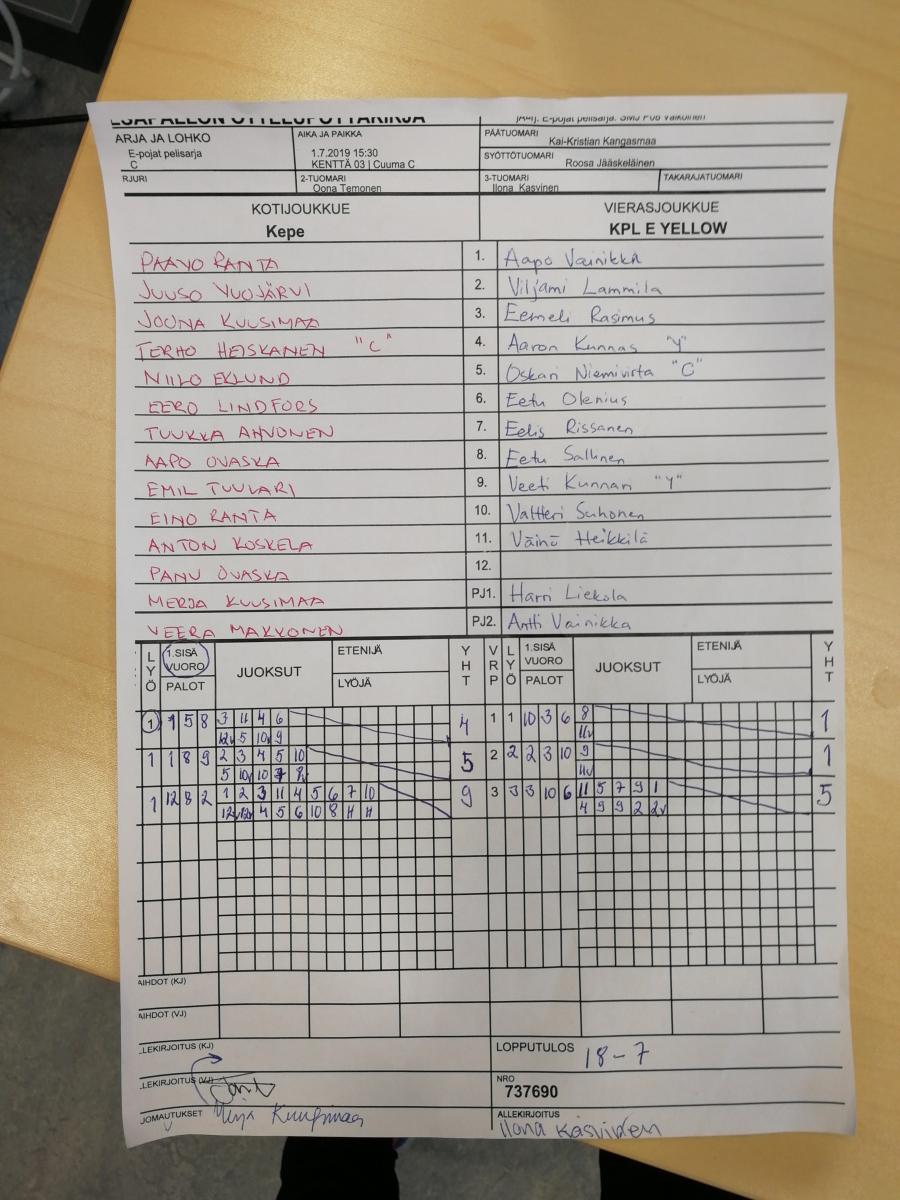 ARJA JA LOHKO
E-pojat pelisarja
C
AIKA JA PAIKKA
1.7.2019 15:30
KENTTÄ 03 | Cuuma C
PÄÄTUOMARI
Kai-Kristian Kangasmaa
SYÖTTÖTUOMARI Roosa Jääskeläinen
RJURI
2-TUOMARI
Oona Temonen
3-TUOMARI
Ilona Kasvinen
TAKARAJATUOMARI
KOTIJOUKKUE
Kepe
VIERASJOUKKUE
KPL E YELLOW
PAAVO RANTA 1. Aapo Vainikka
JUUSO VUOJÄRVI 2. Viljami Lammila
JOONA KUUSIMAA 3. Eemeli Rasimus
TERHO HEISKANEN "C" 4. Aaron Kunnas "Y"
NIILO EKLUND 5. Oskari Niemivirta "C"
EERO LINDFORS 6. Eetu Olenius
TUUKKA AHVONEN 7. Eelis Rissanen
AAPO OVASKA 8. Eetu Sallinen
EMIL TUULARI 9. Veeti Kunnari "Y"
EINO RANTA 10. Valtteri Suhonen
ANTON KOSKELA 11. Väinö Heikkilä
PANU OVASKA 12.
MERJA KUUSIMAA PJ1. Harri Liekola
VEERA MAKKONEN PJ2. Antti Vainikka
LYÖ 1.SISÄ VUORO PALOT JUOKSUT ETENIJÄ LYÖJÄ YHT VRP LYÖ 1.SISÄ VUORO PALOT JUOKSUT ETENIJÄ LYÖJÄ YHT
1 1 5 8 3 11 4 6 4 1 1 10 3 6 8 1
12v 5 10v 9 11v
1 1 8 9 2 3 4 5 10 5 2 2 2 3 10 9 1
5 10v 10 7 8v 11v
1 12 8 2 1 2 3 11 4 5 6 7 10 9 3 3 3 10 6 11 5 7 9 1 5
12v 12v 4 5 6 10 8 H H 4 9 9 2 2v
AIHDOT (KJ)
AIHDOT (VJ)
LLEKIRJOITUS (KJ)
LOPPUTULOS 18-7
LLEKIRJOITUS (VJ)
NRO
737690
JOMAUTUKSET Merja Kuusimaa
ALLEKIRJOITUS
Ilona Kasvinen